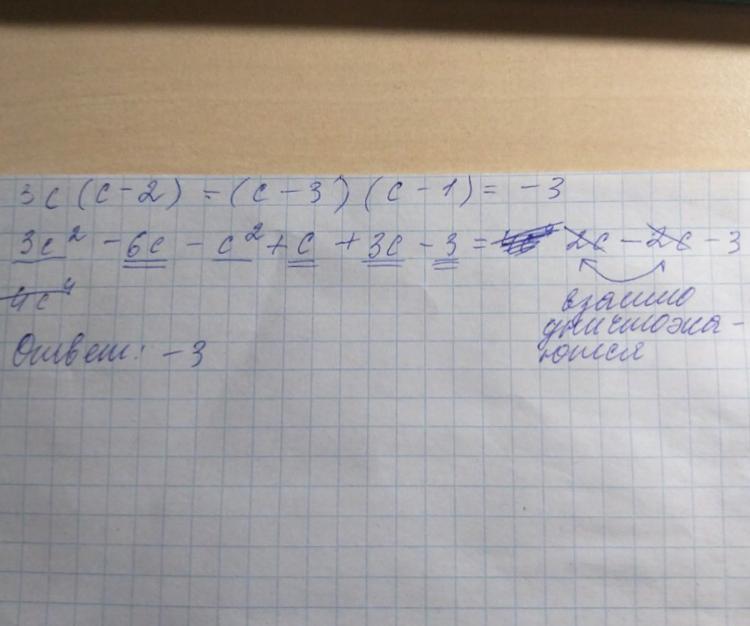 3c (c - 2) - (c - 3) (c - 1) = -3
3c² - 6c - c² + c + 3c - 3 = 2c - 2c - 3
4c⁴
взаимно
уничтожа -
ются
Ответ: -3